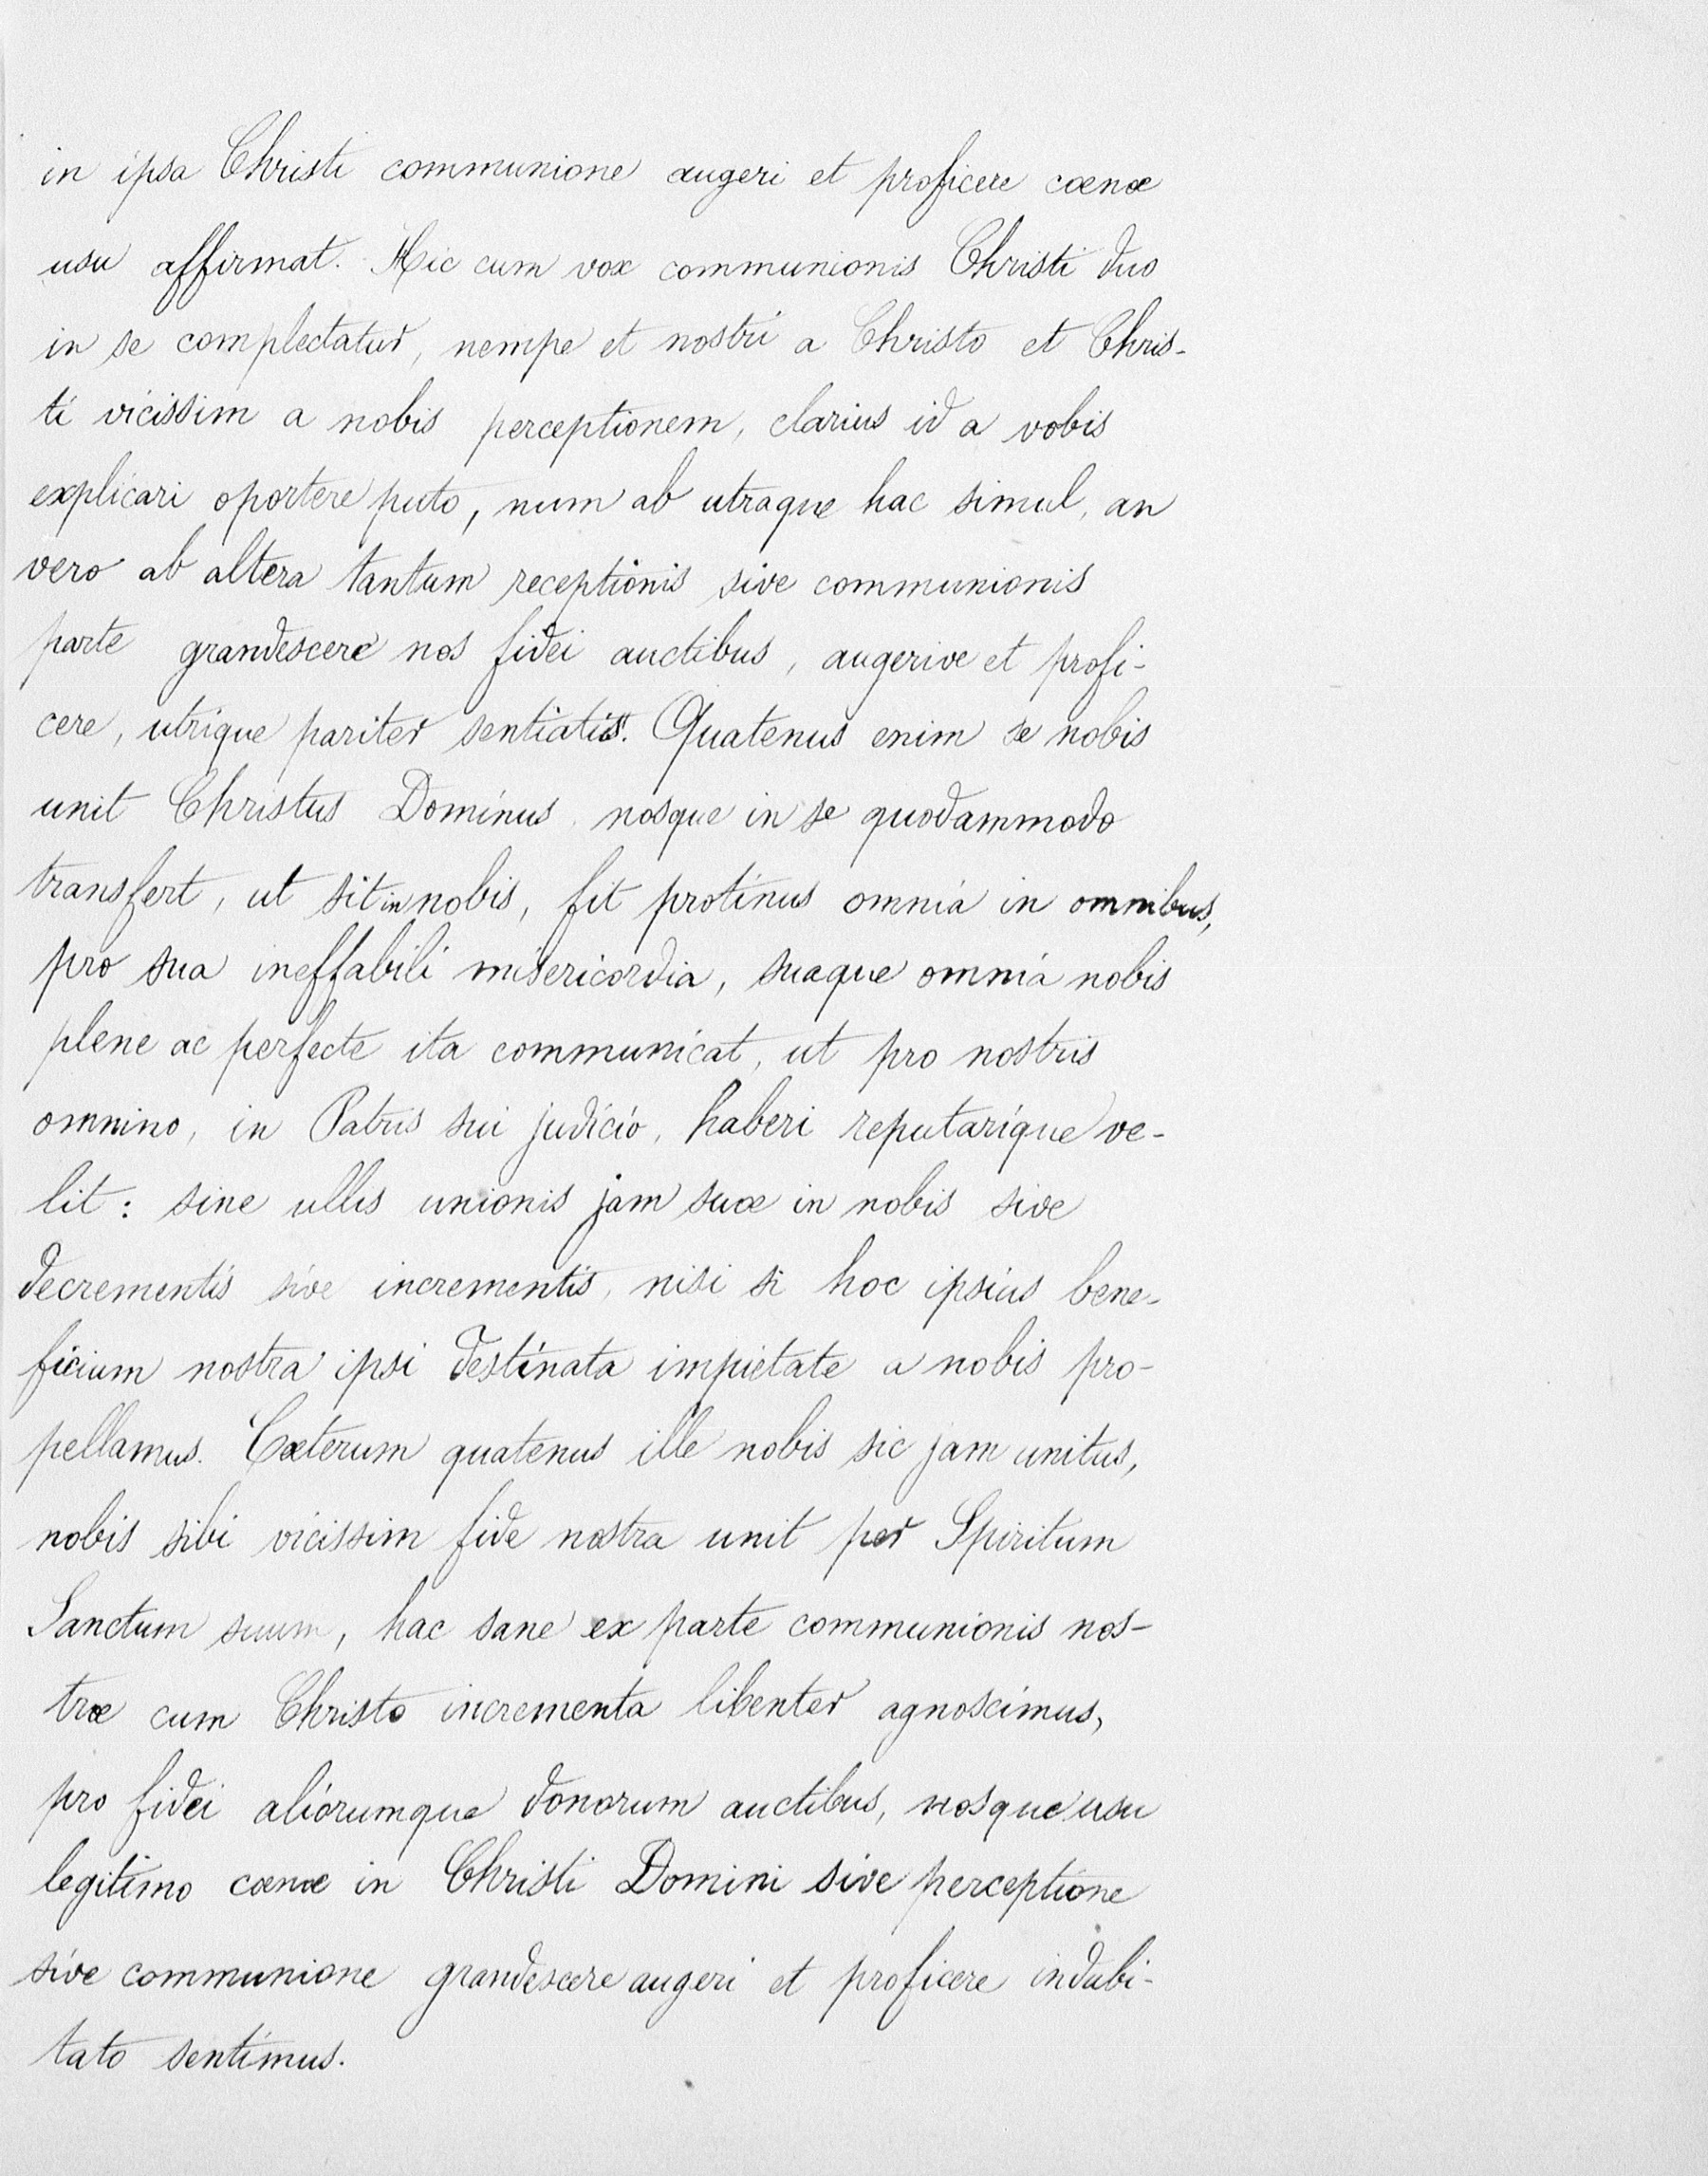 in ipsa Christi communione augeri et proficere cœnæ
usu affirmat. Hic cum vox communionis Christi duo
in se complectatur, nempe et nostri a Christo et Chris-
ti vicissim a nobis perceptionem, clarius id a vobis
explicari oportere puto, num ab utraque hac simul, an
vero ab altera tantum receptionis sive communionis
parte grandescere nos fidei auctibus, augerive et profi-
cere, utrique pariter sentiatis. Quatenus enim se nobis
unit Christus Dominus, nosque in se quodammodo
transfert, ut sit in nobis, fit protinus omnia in omnibus,
pro sua ineffabili misericordia, suaque omnia nobis
plene ac perfecte ita communicat, ut pro nostris
omnino, in Patris sui judicio, haberi reputarique ve-
lit : sine ullis unionis jam suæ in nobis sive
decrementis sive incrementis, nisi si hoc ipsius bene-
ficium nostra ipsi destinata impietate a nobis pro-
pellamus. Cæterum quatenus ille nobis sic jam unitus,
nobis sibi vicissim fide nostra unit per Spiritum
Sanctum suum, hac sane ex parte communionis nos-
træ cum Christo incrementa libenter agnoscimus,
pro fidei aliorumque donorum auctibus, nosque usu
legitimo cœnæ in Christi Domini sive perceptione
sive communione grandescere augeri et proficere indubi-
tato sentimus.